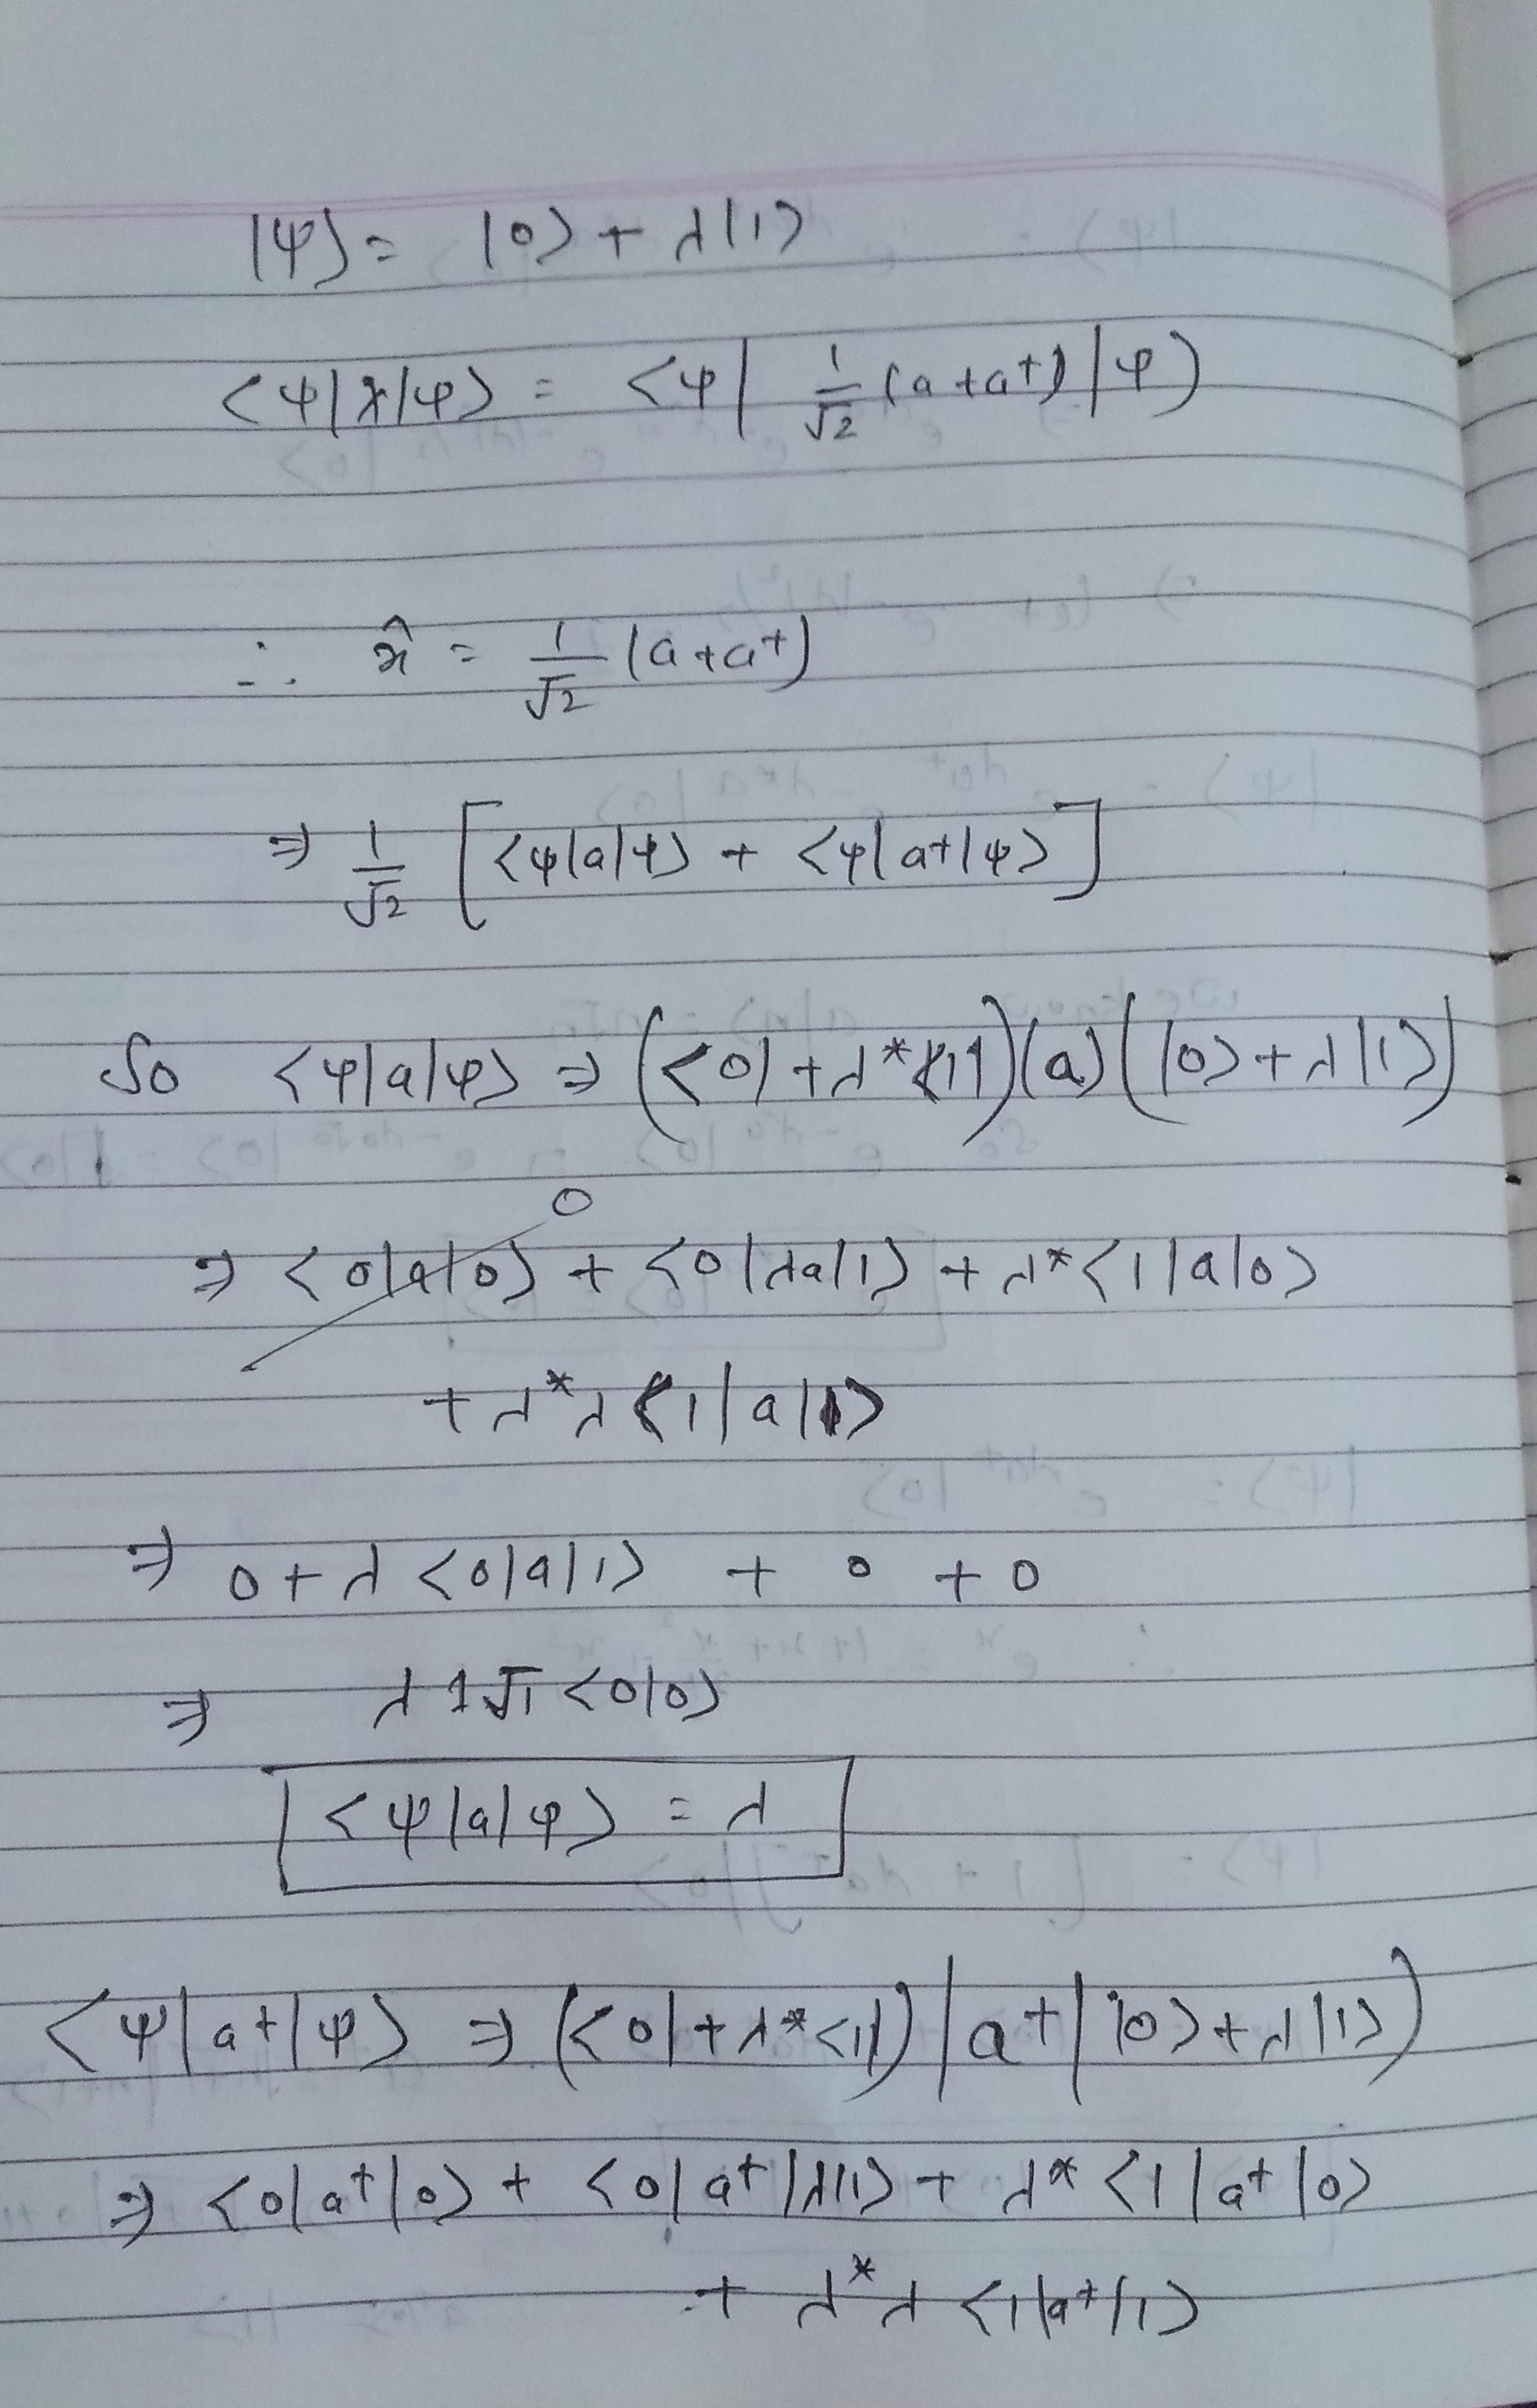 |ψ⟩ = |0⟩ + λ|1⟩
⟨ψ|x|ψ⟩ = ⟨ψ| 1/√2 (a+a†) |ψ⟩
∴ x̂ = 1/√2 (a+a†)
⇒ 1/√2 [⟨ψ|a|ψ⟩ + ⟨ψ|a†|ψ⟩]
So ⟨ψ|a|ψ⟩ ⇒ (⟨0| + λ*⟨1|)(a)(|0⟩ + λ|1⟩)
0
⇒ ⟨0|a|0⟩ + ⟨0|λa|1⟩ + λ*⟨1|a|0⟩
+ λ*λ⟨1|a|1⟩
⇒ 0 + λ⟨0|a|1⟩ + 0 + 0
⇒ λ 1√1 ⟨0|0⟩
⟨ψ|a|ψ⟩ = λ
⟨ψ|a†|ψ⟩ ⇒ (⟨0| + λ*⟨1|)|a†||0⟩ + λ|1⟩)
⇒ ⟨0|a†|0⟩ + ⟨0|a†|λ|1⟩ + λ*⟨1|a†|0⟩
+ λ*λ⟨1|a†|1⟩